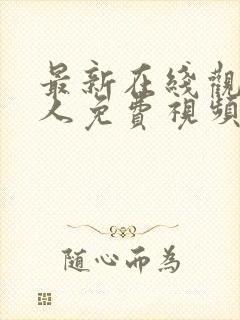 最新在綫觀
人免費視頻
隨心而為